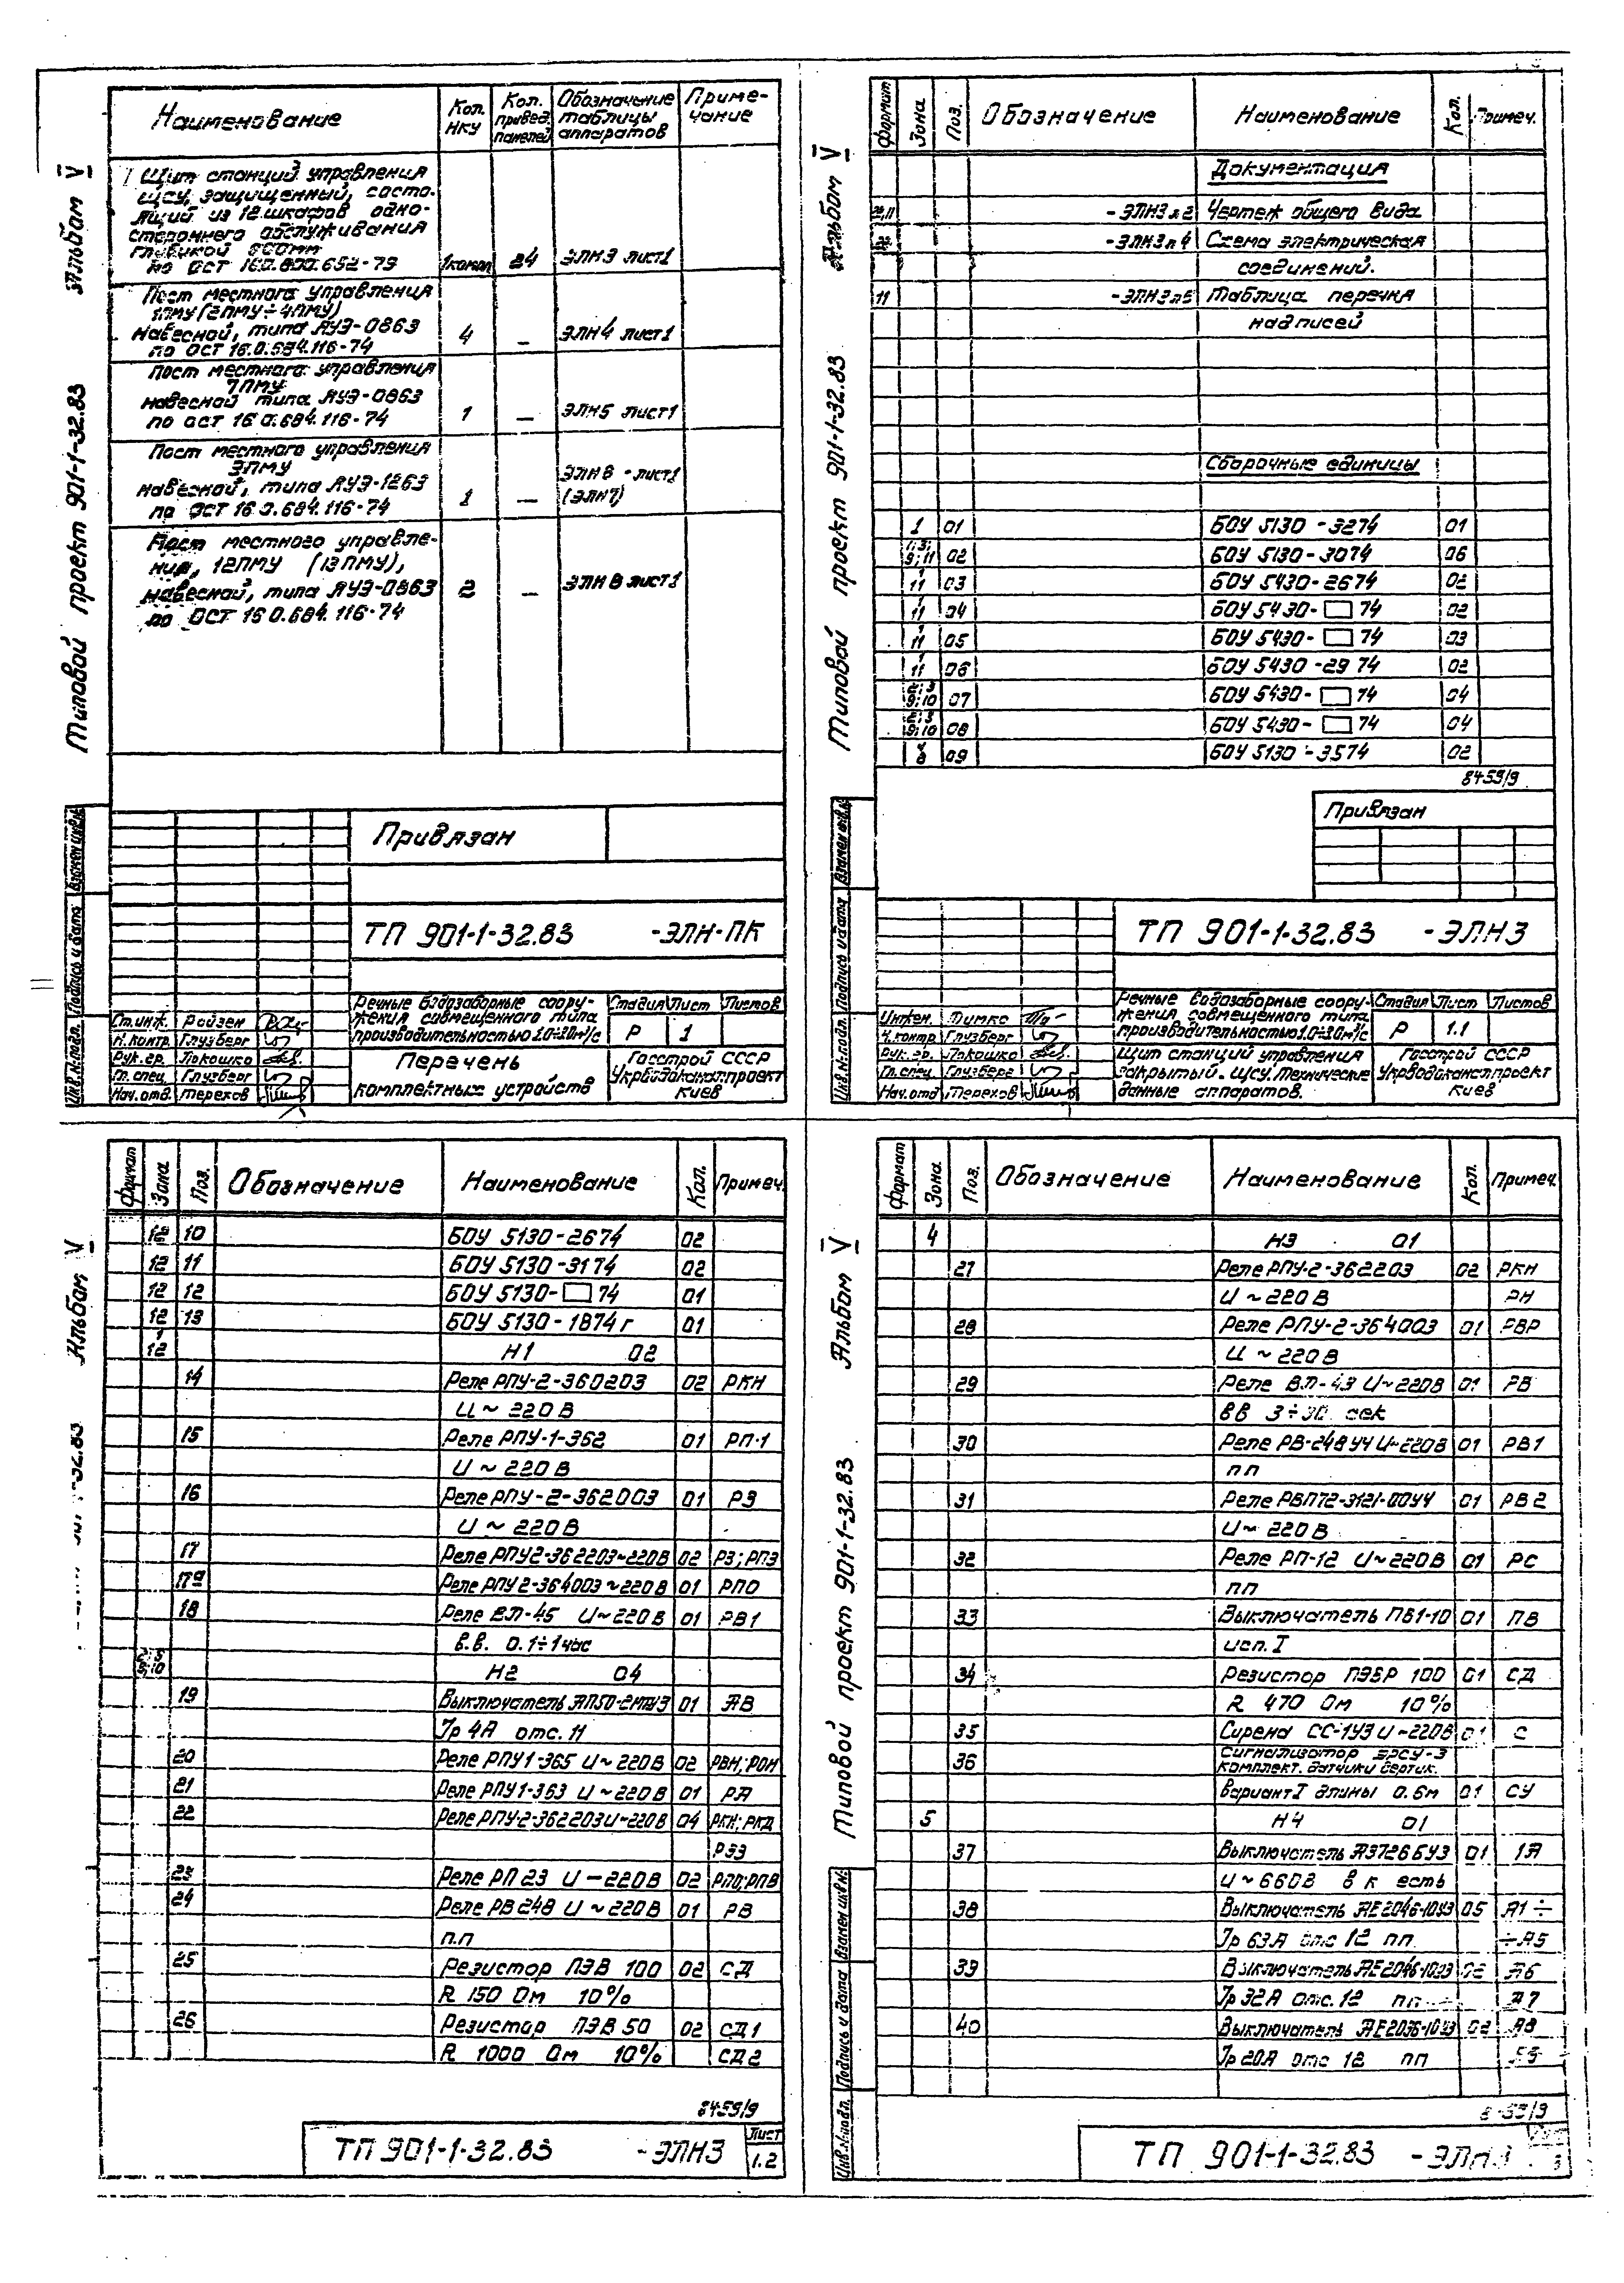 Альбом V
Типовой проект 901-1-32.83
Наименование
Кол. НКУ
Кол. привед. панелей
Обозначение таблицы аппаратов
Приме-чание
Щит станций управления
ЩСУ, защищенный, состо-
ящий из 12 шкафов одно-
стороннего обслуживания
глубиной 800мм
по ОСТ 16.0.800.652-79 1компл 24 ЭЛН3 лист1
Пост местного управления
1ПМУ (2ПМУ÷4ПМУ)
навесной, типа ЯУЭ-0863
по ОСТ 16.0.684.116-74 4 — ЭЛН4 лист1
Пост местного управления
7ПМУ
навесной типа ЯУЭ-0863
по ОСТ 16.0.684.116-74 1 — ЭЛН5 лист1
Пост местного управления
навесной, типа ЯУЭ-1263
по ОСТ 16.0.684.116-74 1 — ЭЛН6 - лист1 (ЭЛН7)
Пост местного управле-
ния, 12ПМУ (13ПМУ),
навесной, типа ЯУЭ-0863
по ОСТ 16.0.684.116-74 2 — ЭЛН8 лист1
Привязан
ТП 901-1-32.83 -ЭЛН-ПК
Речные водозаборные соору-
жения совмещенного типа
производительностью 1.0÷3.0м³/с
Стадия Лист Листов
Р 1
Ст.инж. Ройзен
Н.контр. Глузберг
Рук. гр. Локошко
Гл. спец. Глузберг
Нач. отд. Терехов
Перечень
комплектных устройств
Госстрой СССР
Укрводоканалпроект
Киев
Инв.№подл. Подпись и дата Взамен инв.№
Альбом V
Типовой проект 901-1-32.83
Формат Зона Поз. Обозначение Наименование Кол. Примеч.
Документация
-ЭЛН3л2 Чертеж общего вида
-ЭЛН3л4 Схема электрическая
соединений.
11 -ЭЛН3л5 Таблица перечня
надписей
Сборочные единицы
1 01 БОУ 5130-3274 01
1;3; 9;11 02 БОУ 5130-3074 06
1 11 03 БОУ 5430-2674 02
1 11 04 БОУ 5430-□74 02
1 11 05 БОУ 5430-□74 03
1 11 06 БОУ 5430-2974 02
2;3 9;10 07 БОУ 5430-□74 04
2;3 9;10 08 БОУ 5430-□74 04
8 09 БОУ 5130-3574 02
8459/9
Привязан
ТП 901-1-32.83 -ЭЛН3
Речные водозаборные соору-
жения совмещенного типа
производительностью 1.0÷3.0м³/с
Стадия Лист Листов
Р 1.1
Инжен. Тимко
Н.контр. Глузберг
Рук. гр. Локошко
Гл. спец. Глузберг
Нач. отд Терехов
Щит станций управления
закрытый. ЩСУ. Технические
данные аппаратов.
Госстрой СССР
Укрводоканалпроект
Киев
Инв.№подл. Подпись и дата Взамен инв.№
Альбом V
Формат Зона Поз. Обозначение Наименование Кол. Примеч.
12 10 БОУ 5130-2674 02
12 11 БОУ 5130-3174 02
12 12 БОУ 5130-□74 01
12 13 БОУ 5130-1874г 01
1 12 Н1 02
14 Реле РПУ-2-360203 02 РКН
U ~ 220В
15 Реле РПУ-1-362 01 РП·1
U ~ 220В
16 Реле РПУ-2-362003 01 РЭ
U ~ 220В
17 Реле РПУ2-362203~220В 02 РЗ; РПЗ
17а Реле РПУ2-364003~220В 01 РПО
18 Реле ВЛ-45 U~220В 01 РВ1
в.в. 0.1÷1час
Н2 04
19 Выключатель АП50-2МТУ3 01 АВ
Iр 4А отс. 11
20 Реле РПУ1-365 U~220В 02 РВН; РОН
21 Реле РПУ1-363 U~220В 01 РА
22 Реле РПУ-2-362203U~220В 04 РКН; РКД
РЗЭ
23 Реле РП23 U—220В 02 РПО; РПВ
24 Реле РВ248 U~220В 01 РВ
п.п
25 Резистор ПЭВ 100 02 СД
R 150 Ом 10%
26 Резистор ПЭВ 50 02 СД1
R 1000 Ом 10% СД2
8459/9
ТП 901-1-32.83 -ЭЛН3
Лист
1.2
Альбом V
Типовой проект 901-1-32.83
Формат Зона Поз. Обозначение Наименование Кол. Примеч.
4 Н3 01
27 Реле РПУ-2-362203 02 РКН
U ~220В РН
28 Реле РПУ-2-364003 01 РВР
U ~220В
29 Реле ВЛ-43 U~220В 01 РВ
ВВ 3÷30 сек
30 Реле РВ-248У4 U~220В 01 РВ1
пп
31 Реле РВП72-3121-00У4 01 РВ2
U~ 220В
32 Реле РП-12 U~220В 01 РС
пп
33 Выключатель ПВ1-10 01 ПВ
исп. I
34 Резистор ПЭВР 100 01 СД
R 470 Ом 10%
35 Сирена СС-1У3 U~220В 01 С
36 Сигнализатор ЭРСУ-3
комплект. датчики вертик.
вариант I длины 0.6м 01 СУ
5 Н4 01
37 Выключатель А3726БУ3 01 1А
U~660В в к есть
38 Выключатель АЕ2046-10У3 05 А1÷
Iр 63А отс 12 пп ÷А5
39 Выключатель АЕ2046-10У3 02 А6
Iр 32А отс. 12 пп А7
40 Выключатель АЕ2036-10У3 02 А8
Iр 20А отс 12 пп
ТП 901-1-32.83 -ЭЛН3
Инв.№подл. Подпись и дата Взамен инв.№